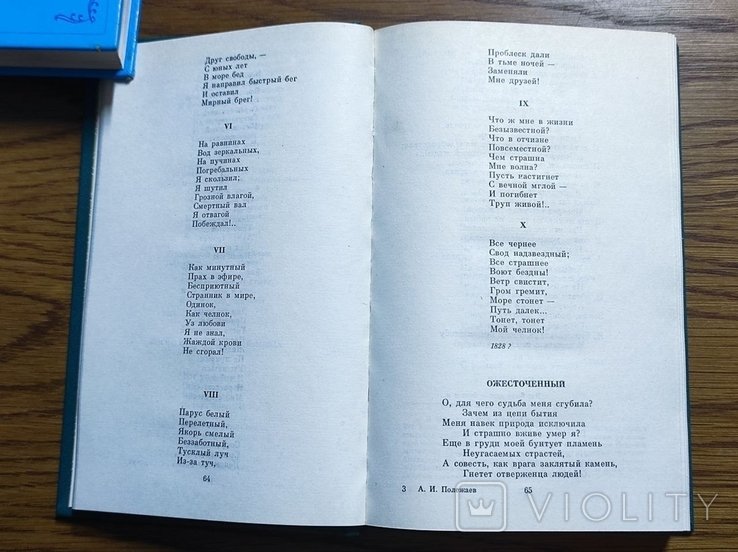 Друг свободы, —
С юных лет
В море бед
Я направил быстрый бег
И оставил
Мирный брег!
VI
На равнинах
Вод зеркальных,
На пучинах
Погребальных
Я скользил;
Я шутил
Грозной влагой,
Смертный вал
Я отвагой
Побеждал!..
VII
Как минутный
Прах в эфире,
Бесприютный
Странник в мире,
Одинок,
Как челнок,
Уз любови
Я не знал,
Жаждой крови
Не сгорал!
VIII
Парус белый
Перелетный,
Якорь смелый
Беззаботный,
Тусклый луч
Из-за туч,
64
Проблеск дали
В тьме ночей —
Заменяли
Мне друзей!
IX
Что ж мне в жизни
Безызвестной?
Что в отчизне
Повсеместной?
Чем страшна
Мне волна?
Пусть растигнет
С вечной мглой —
И погибнет
Труп живой!..
X
Все чернее
Свод надзвездный;
Все страшнее
Воют бездны!
Ветр свистит,
Гром гремит,
Море стонет —
Путь далек...
Тонет, тонет
Мой челнок!
1828 ?
ОЖЕСТОЧЕННЫЙ
О, для чего судьба меня сгубила?
Зачем из цепи бытия
Меня навек природа исключила
И страшно вживе умер я?
Еще в груди моей бунтует пламень
Неугасаемых страстей,
А совесть, как врага заклятый камень,
Гнетет отверженца людей!
3 А. И. Полежаев 65
VIOLITY